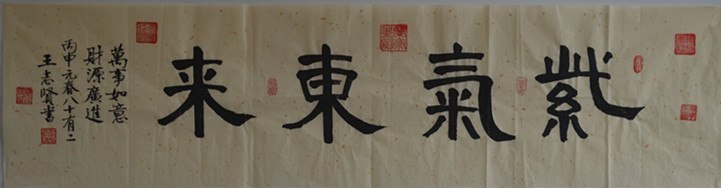 紫氣東来
萬事如意
財源廣進
丙申元春八十有二
王志賢書